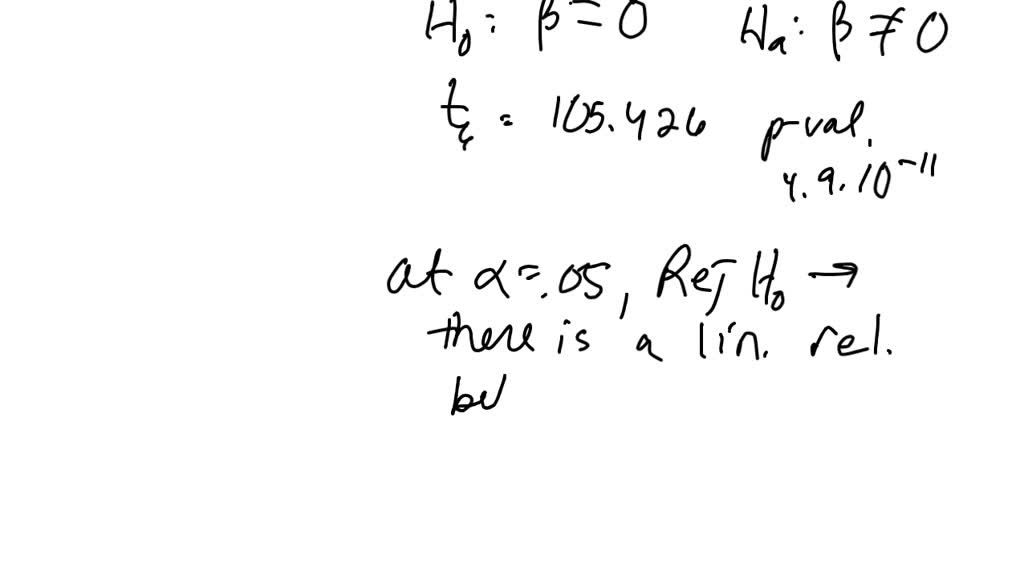 H₀: β = 0 Hₐ: β ≠ 0
t₆ = 105.426 p-val.
4.9.10⁻¹¹
at α=.05, Rej H₀ →
there is a lin. rel.